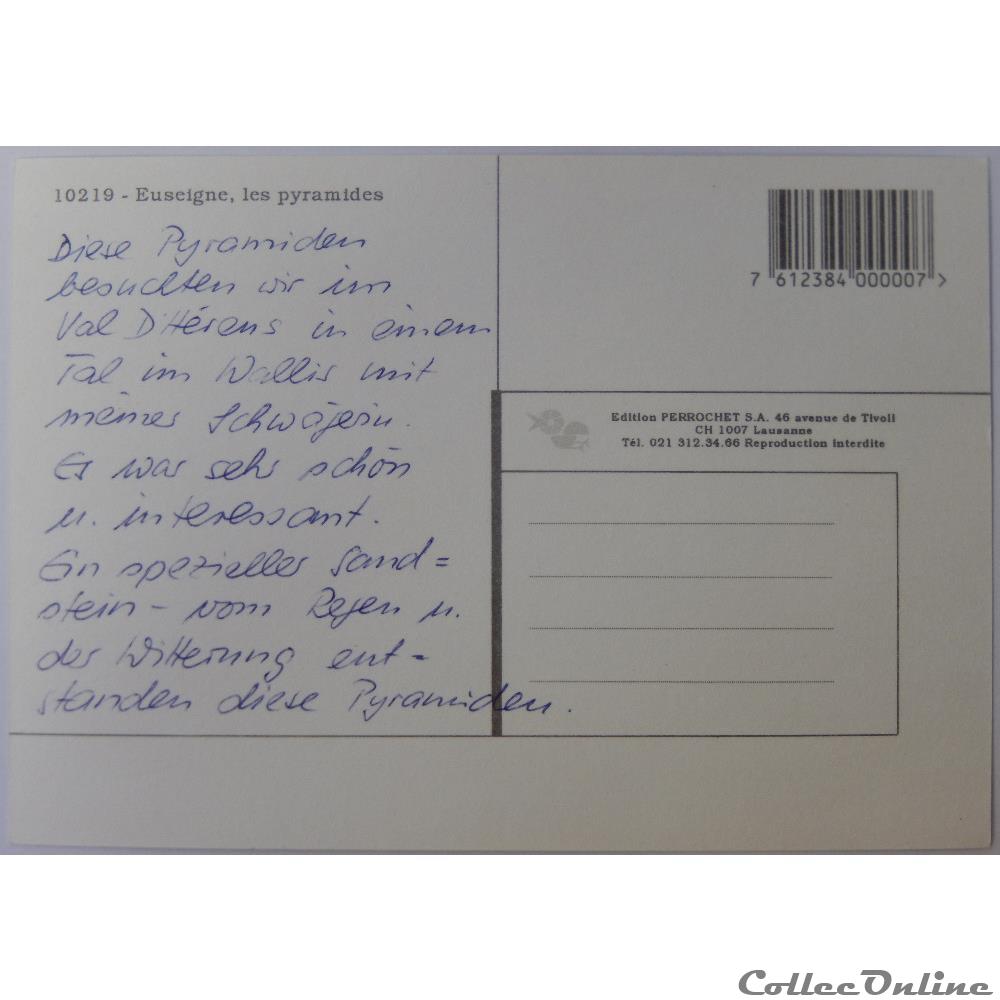 10219 - Euseigne, les pyramides
Diese Pyramiden
besuchten wir im
Val D'Hérens in einem
Tal im Wallis mit
meiner Schwägerin.
Es war sehr schön
u. interessant.
Ein spezieller Sand=
stein - vom Regen u.
der Witterung ent-
standen diese Pyramiden.
7 612384 000007 >
Edition PERROCHET S.A. 46 avenue de Tivoli
CH 1007 Lausanne
Tél. 021 312.34.66 Reproduction interdite
CollecOnline